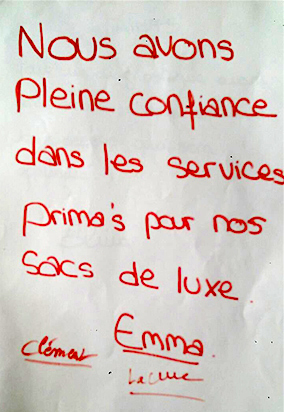 Nous avons
Pleine confiance
dans les services
prima's pour nos
sacs de luxe.
Emma.
Clément